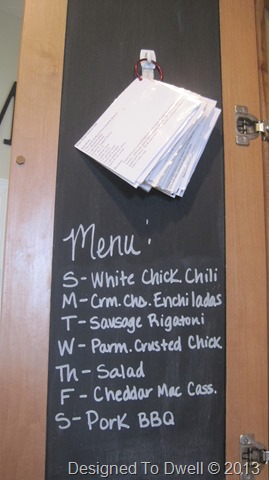 Menu:
S - White Chick Chili
M - Crm. Chs. Enchiladas
T - Sausage Rigatoni
W - Parm. Crusted Chick
Th - Salad
F - Cheddar Mac Cass.
S - Pork BBQ
Designed To Dwell © 2013